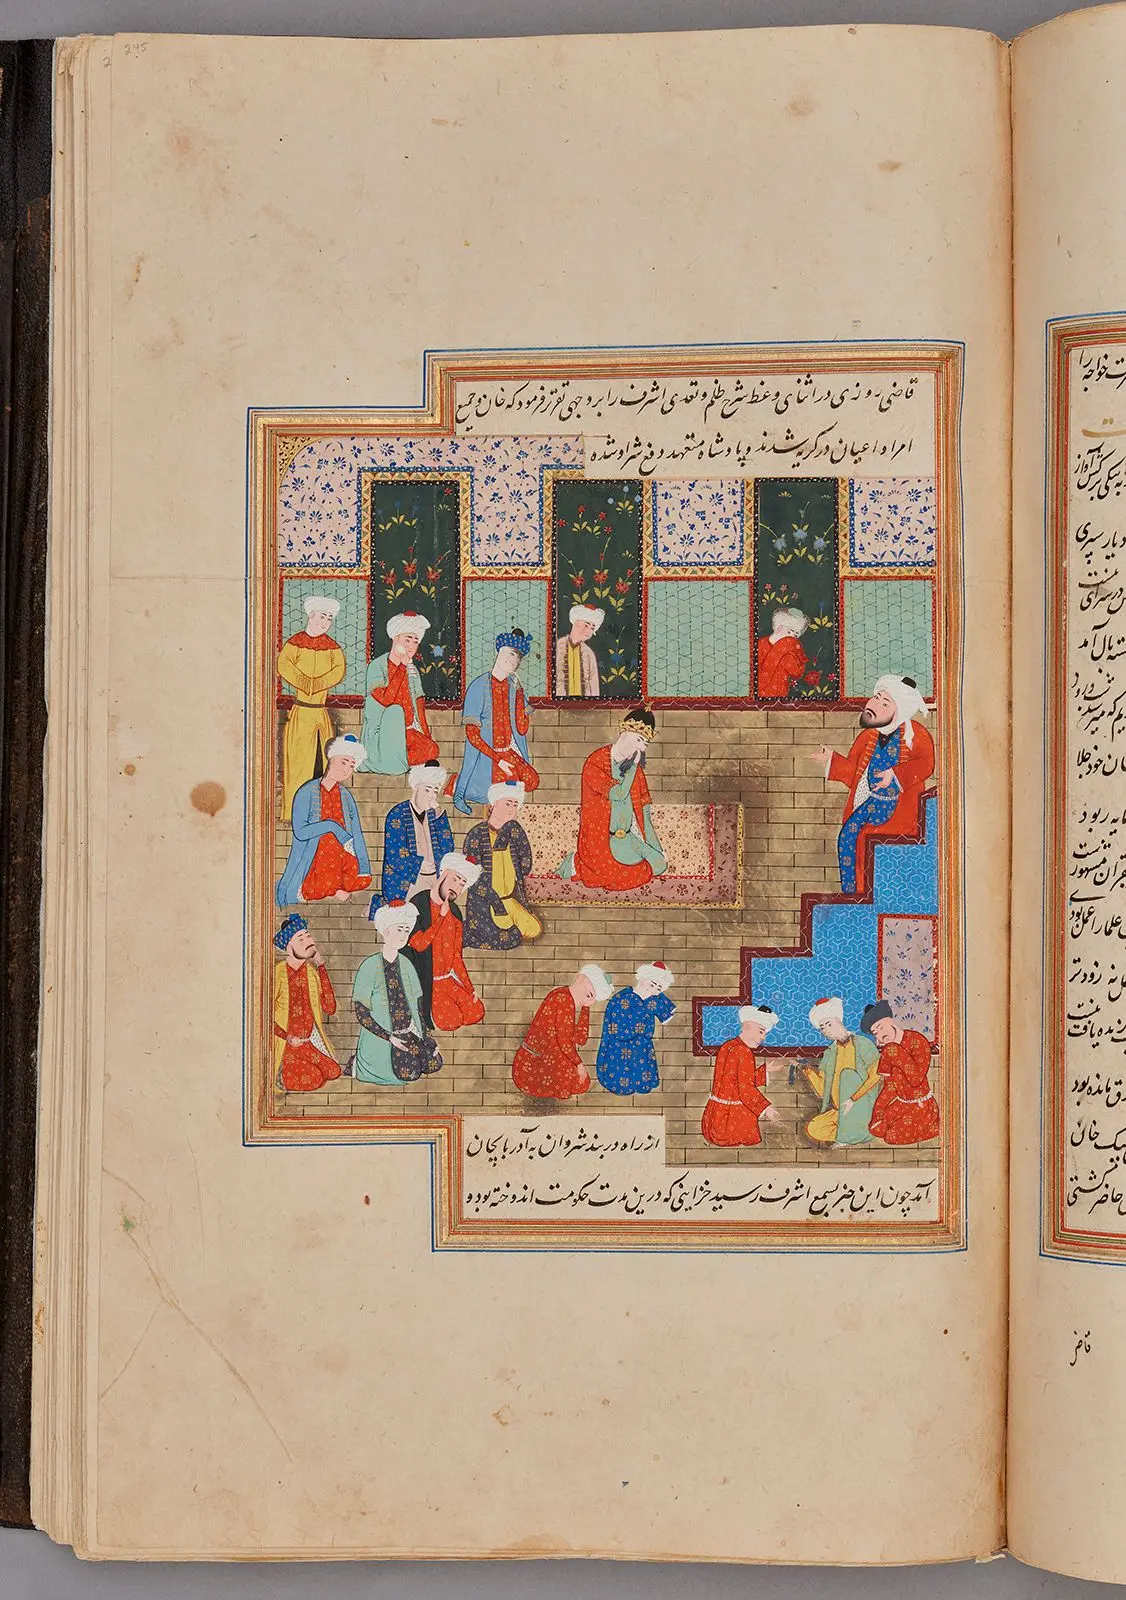 245
قاضی روزی در اثنای وعظ شرح ظلم و تعدی اشرف را بر وجهی تقریر فرمود که خان و جمیع
امرا و اعیان در گریه شدند و پادشاه متعهد دفع شر او شده
از راه دربند شروان به آذربایجان
آمد چون این خبر بسمع اشرف رسید خزاینی که درین مدت حکومت اندوخته بود و
خواجه را
آواز
دیار سپری
بال آمد
خود جلا
مایه ربود
قرآن مشهور
علما را
زودتر
مانده بود
بیک خان
حاضر گشتی
قاضی